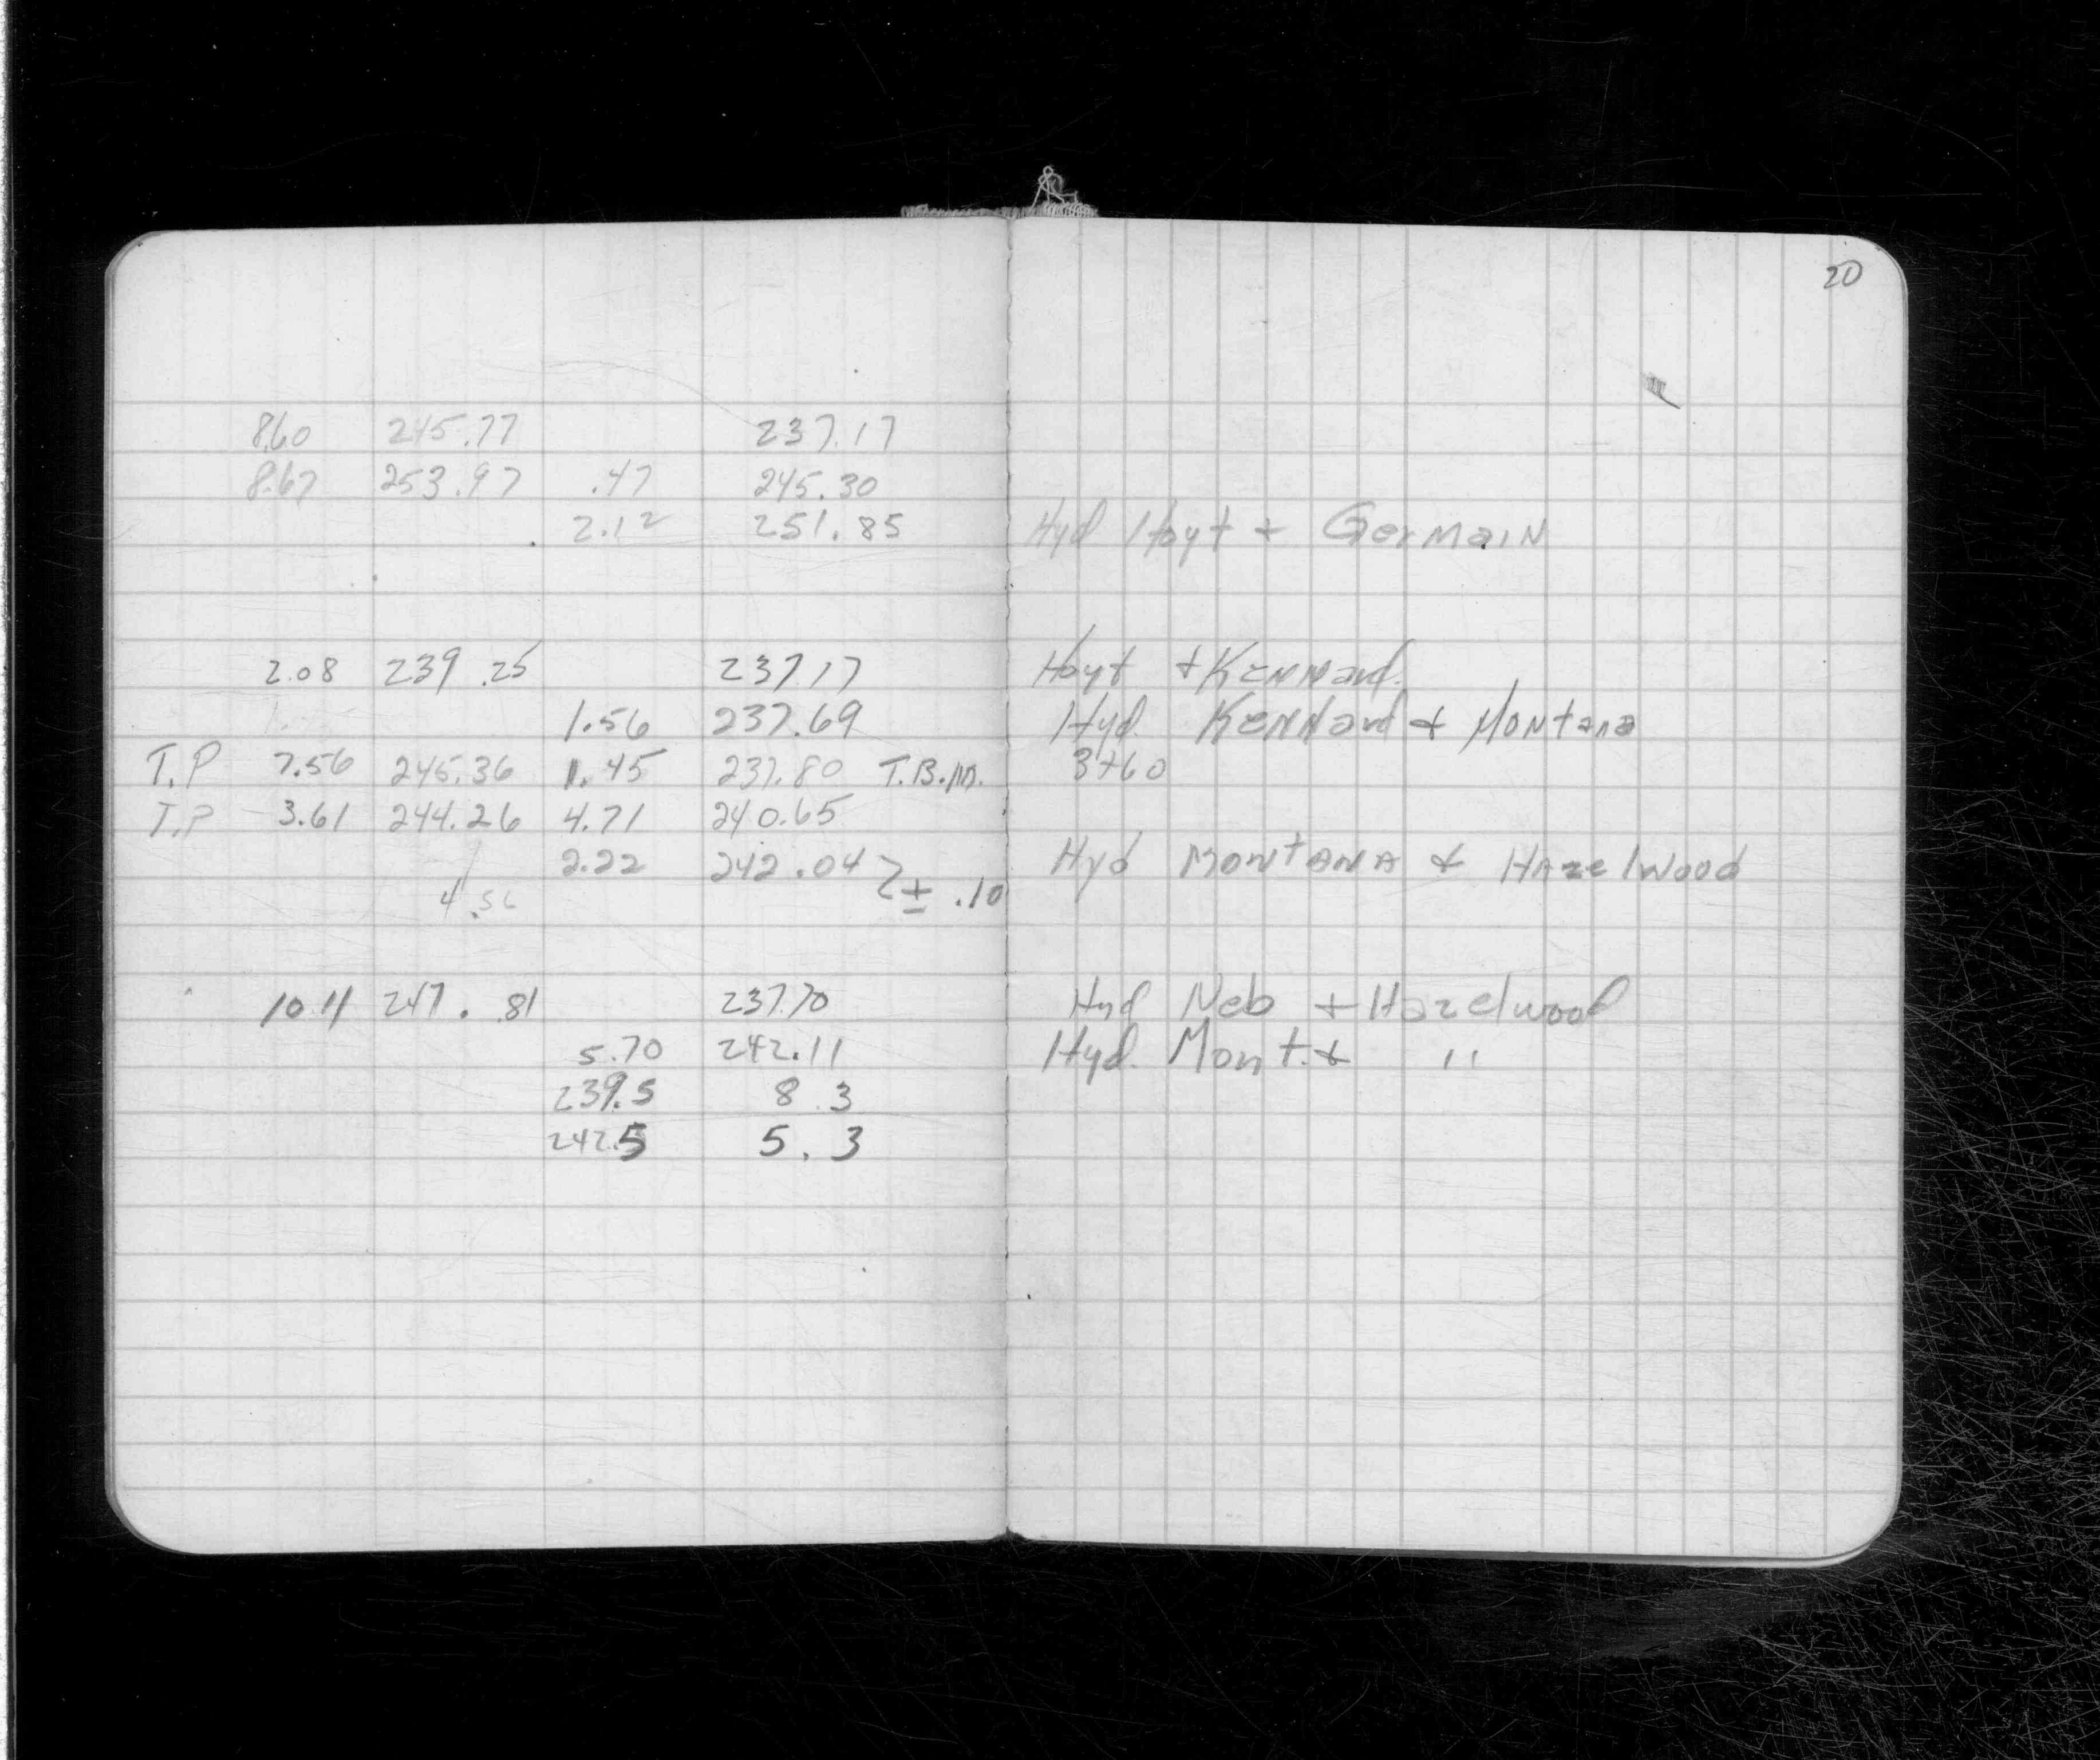 20
8.60 245.77 237.17
8.67 253.97 .47 245.30
2.12 251.85 Hyd Hoyt + Germain
2.08 239.25 237.17 Hoyt + Kennard.
1.56 237.69 Hyd. Kennard + Montana
T.P 7.56 245.36 1.45 237.80 T.B.M. 3+60
T.P 3.61 244.26 4.71 240.65
2.22 242.04 Hyd Montana & Hazelwood
± .10
10.11 247.81 237.70 Hyd Neb + Hazelwood
5.70 242.11 Hyd. Mont. & "
239.5 8.3
242.5 5.3